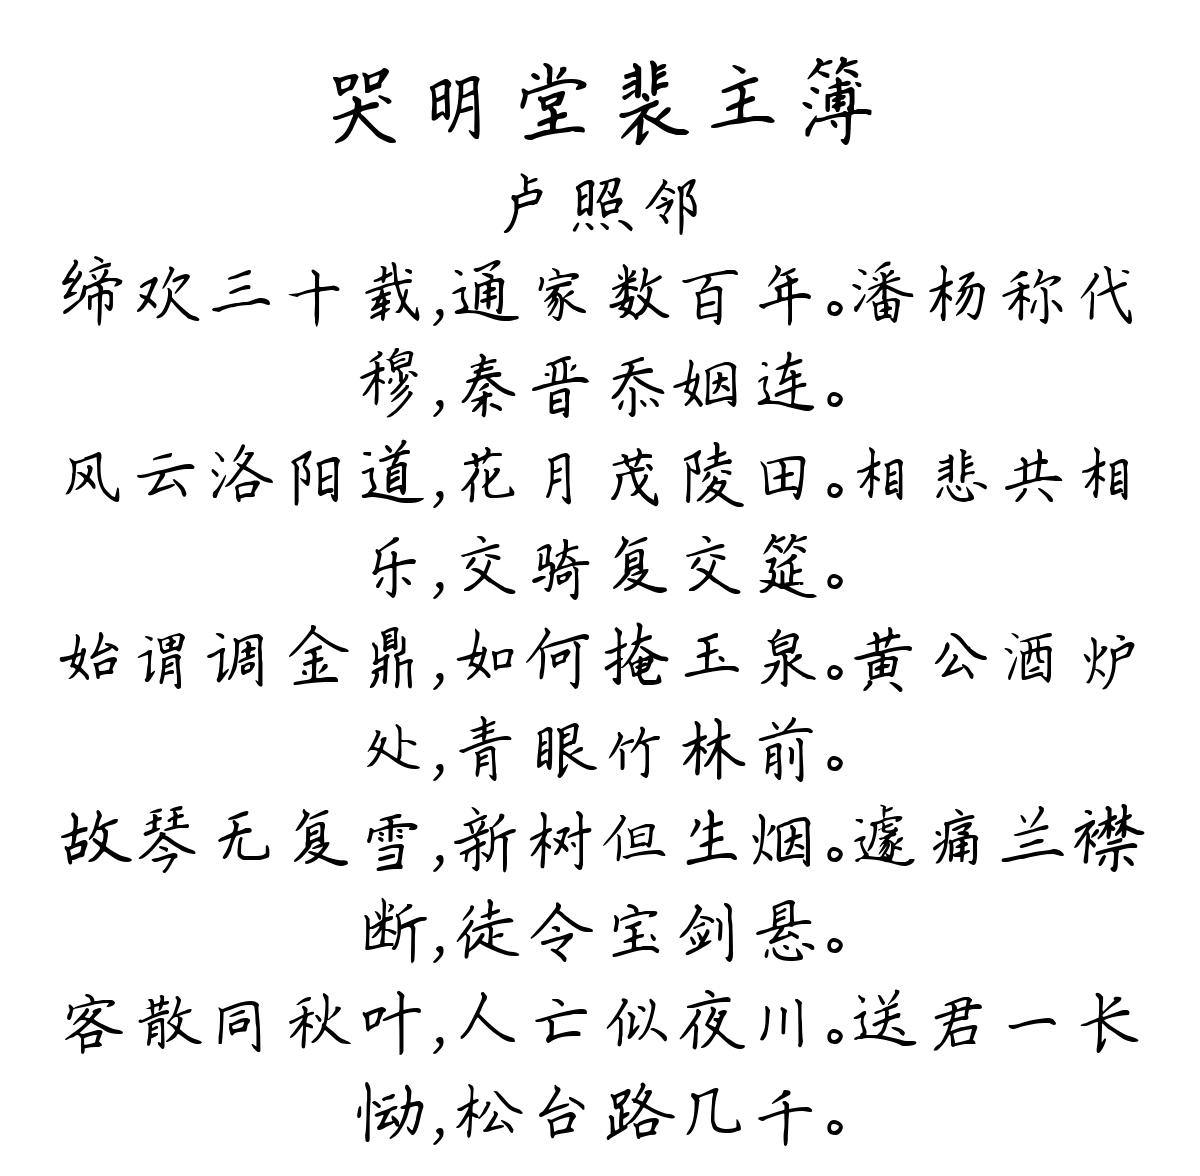 哭明堂裴主簿
卢照邻
缔欢三十载,通家数百年。潘杨称代
穆,秦晋忝姻连。
风云洛阳道,花月茂陵田。相悲共相
乐,交骑复交筵。
始谓调金鼎,如何掩玉泉。黄公酒炉
处,青眼竹林前。
故琴无复雪,新树但生烟。遽痛兰襟
断,徒令宝剑悬。
客散同秋叶,人亡似夜川。送君一长
恸,松台路几千。